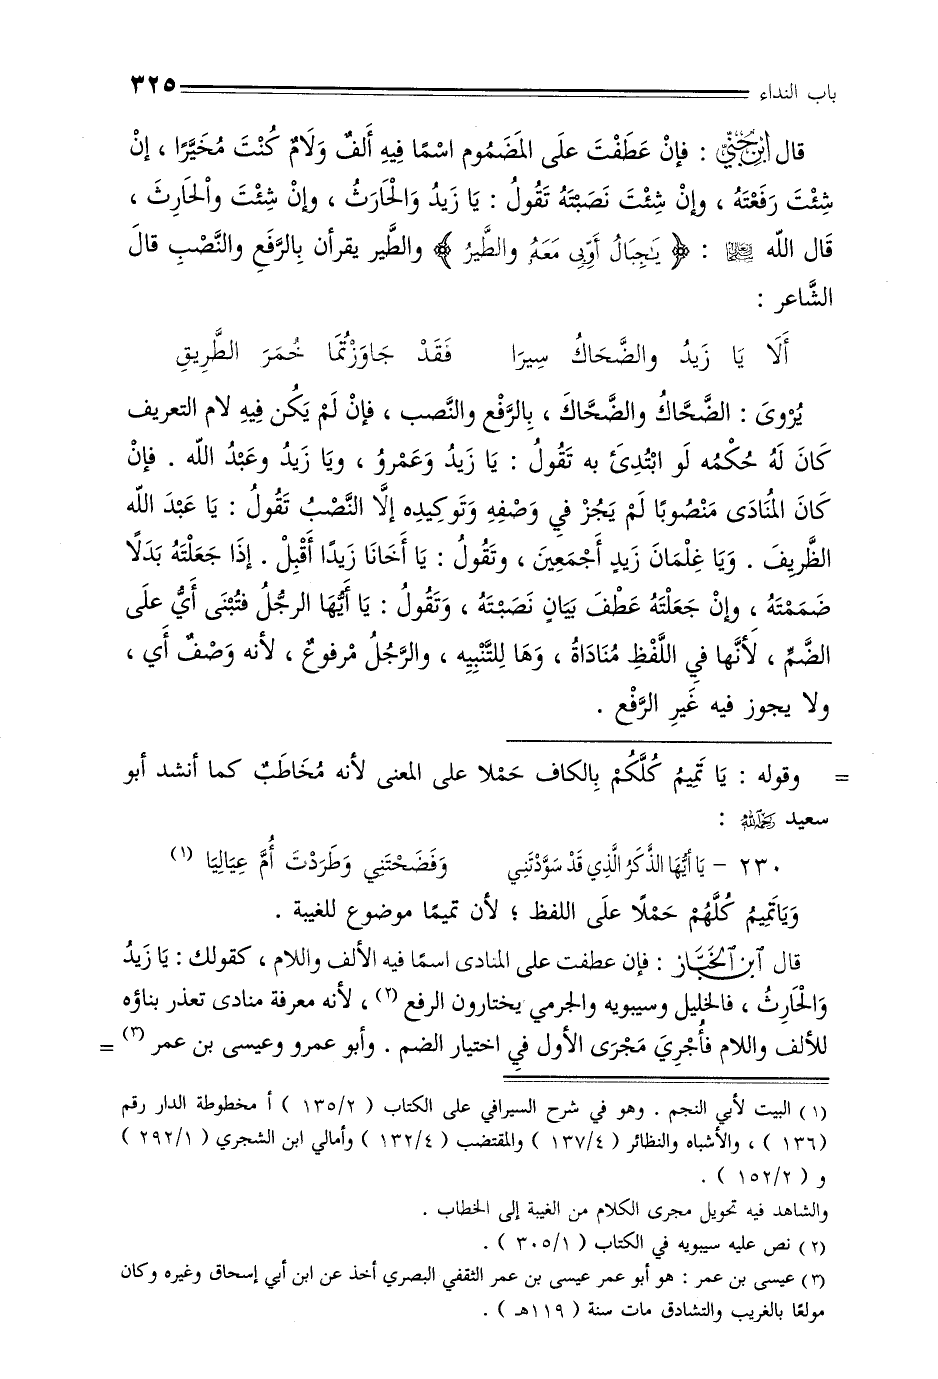 باب النداء ٣٢٥
قال ابن جني : فإنْ عَطَفْتَ علَى المَضموم اسْمًا فِيهِ أَلفٌ وَلَامٌ كُنْتَ مُخَيَّرًا ، إنْ
شِئْتَ رَفَعْتَهُ ، وإنْ شِئْتَ نَصَبْتَهُ تَقُولُ : يَا زَيدُ وَالْحَارَثُ ، وإنْ شِئْتَ واْلحَارِثَ ،
قَال اللّه ﷿ : ﴿ يَٰجِبَالُ أَوِّبِى مَعَهُ والطَّيرُ ﴾ والطَّير يقرأن بِالرَّفَعِ والنَّصْبِ قالَ
الشَّاعر :
أَلَا يَا زَيدُ والضَّحَاكُ سِيرَا فَقَدْ جَاوَزْتُمَا خُمَرَ الطَّرِيقِ
يُرْوىَ : الضَّحَّاكُ والضَّحَّاكَ ، بِالرَّفْع والنَّصب ، فإنْ لَمْ يَكُن فِيهِ لام التعريف
كَانَ لَهُ حُكْمُه لَو ابْتُدِئَ به تَقُولُ : يَا زَيدُ وَعَمْرُو ، ويَا زَيدُ وعَبْدُ اللّه . فإنْ
كَانَ المُنَادَى مَنْصُوبًا لَمْ يَجُزْ في وَصْفِهِ وَتَوكِيدِه إلَّا النَّصْبُ تَقُولُ : يَا عَبْدَ اللّه
الظَّرِيفَ . وَيَا غِلْمَانَ زَيدٍ أَجْمَعِينَ ، وتَقُولُ : يَا أَخَانَا زَيدًا أَقْبِلْ . إذَا جَعَلْتَهُ بَدَلًا
ضَمَمْتَهُ ، وإنْ جَعَلْتَهُ عَطْفَ بَيَانٍ نَصَبْتَهُ ، وَتَقُولُ : يَا أَيُّهَا الرجُلُ فَتُبْنَى أَيُّ علَى
الضَّمِّ ، لأَنَّها فِي اللَّفْظِ مُنَادَاةُ ، وَهَا لِلتَّنْبِيِه ، والرَّجُلُ مْرفوعٌ ، لأنه وَصْفٌ أَي ،
ولا يجوز فيه غَيرِ الرَّفْع .
= وقوله : يَا تَمِيمُ كُلَّكُمْ بِالكاف حَمْلا على المعنى لأنه مُخَاطَبٌ كما أنشد أبو
سعيد رحمه الله :
٢٣٠ - يَا أَيُّهَا الذَّكَرُ الَّذِي قَدْ سَوَّدْتَنِي وَفَضَحْتَنِي وَطَرَدْتَ أُمَّ عِيَالِيَا (١)
وَيَاتَمِيمُ كُلَّهُمْ حَمْلًا علَى اللفظ ؛ لأن تميمًا موضوع للغيبة .
قال ابن الخباز : فإن عطفت على المنادى اسمًا فيه الألف واللام ، كقولك : يَا زَيدُ
وَالْحَارِثُ ، فالخليل وسيبويه والجرمي يختارون الرفع (٢) ، لأنه معرفة منادى تعذر بناؤه
للألف واللام فأُجْرِيَ مَجْرَى الأول في اختيار الضم . وأبو عمرو وعيسى بن عمر (٣) =
(١) البيت لأبي النجم . وهو في شرح السيرافي على الكتاب ( ١٣٥/٢ ) أ مخطوطة الدار رقم
(١٣٦ ) ، والأشباه والنظائر ( ١٣٧/٤ ) والمقتضب ( ١٣٢/٤ ) وأمالي ابن الشجري ( ٢٩٢/١ )
و ( ١٥٢/٢ ) .
والشاهد فيه تحويل مجرى الكلام من الغيبة إلى الخطاب .
(٢) نص عليه سيبويه في الكتاب ( ٣٠٥/١ ) .
(٣) عيسى بن عمر : هو أبو عمر عيسى بن عمر الثقفي البصري أخذ عن ابن أبي إسحاق وغيره وكان
مولعًا بالغريب والتشادق مات سنة ( ١١٩هـ ) .